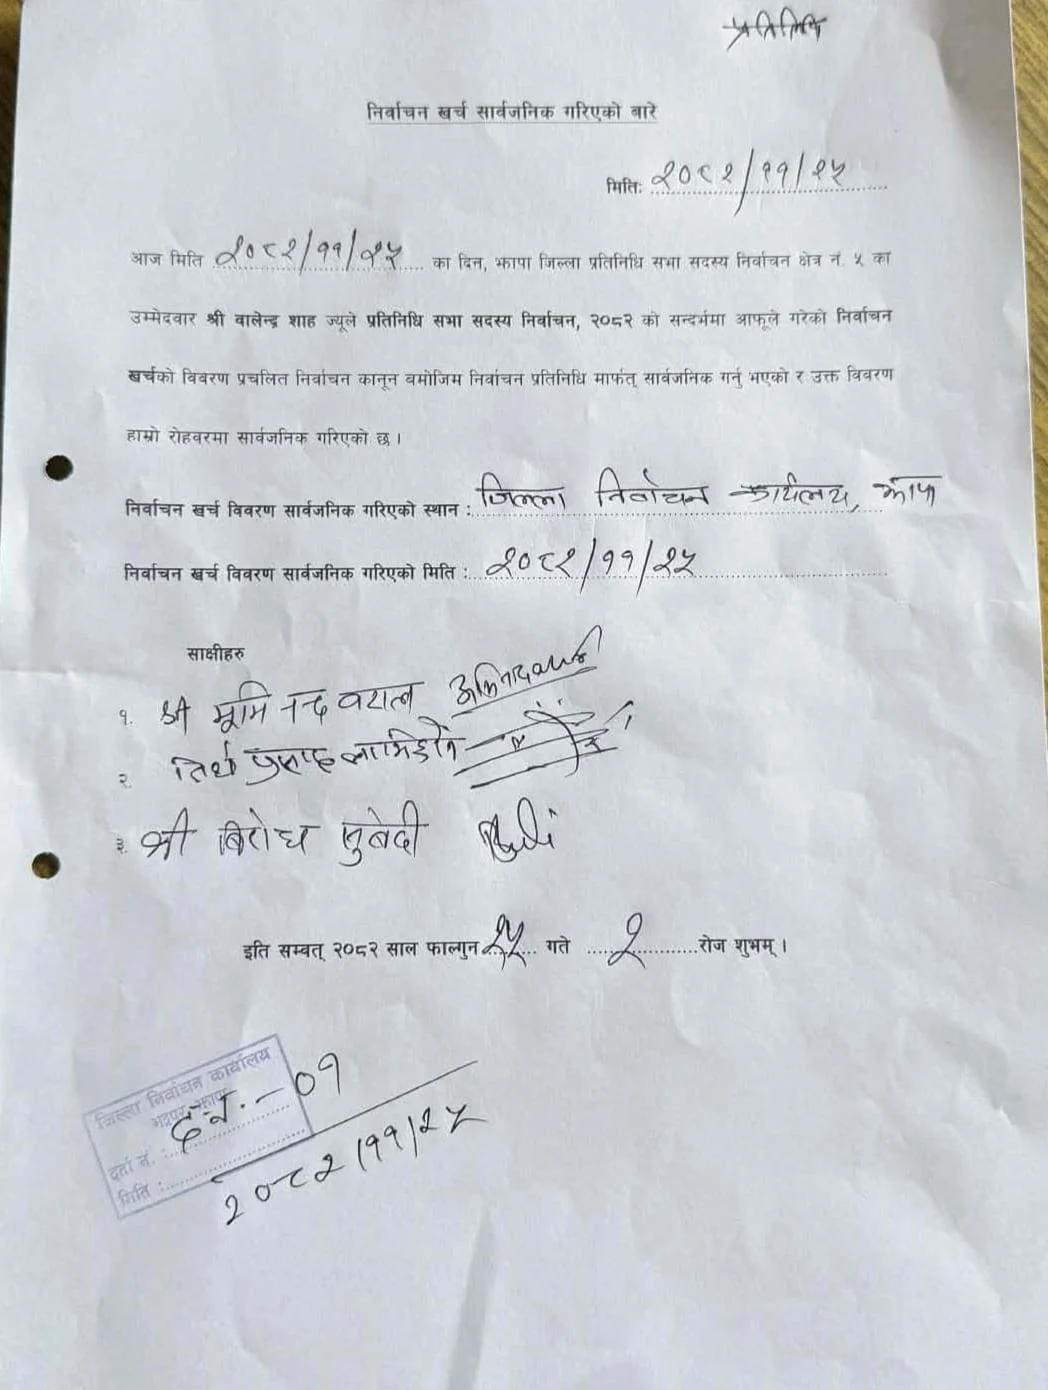 प्रतिलिपि
निर्वाचन खर्च सार्वजनिक गरिएको बारे
मितिः २०८२/११/२५
आज मिति २०८२/११/२५ का दिन, झापा जिल्ला प्रतिनिधि सभा सदस्य निर्वाचन क्षेत्र नं. ५ का
उम्मेदवार श्री वालेन्द्र शाह ज्यूले प्रतिनिधि सभा सदस्य निर्वाचन, २०८२ को सन्दर्भमा आफूले गरेको निर्वाचन
खर्चको विवरण प्रचलित निर्वाचन कानून बमोजिम निर्वाचन प्रतिनिधि मार्फत् सार्वजनिक गर्नु भएको र उक्त विवरण
हाम्रो रोहवरमा सार्वजनिक गरिएको छ ।
निर्वाचन खर्च विवरण सार्वजनिक गरिएको स्थान : जिल्ला निर्वाचन कार्यालय, झापा
निर्वाचन खर्च विवरण सार्वजनिक गरिएको मिति : २०८२/११/२५
साक्षीहरु
१. श्री भूमि नन्द
२. तिर्थ प्रसाद
३. श्री बिरोध सुबेदी
इति सम्बत् २०८२ साल फाल्गुन २५ गते २ रोज शुभम् ।
जिल्ला निर्वाचन कार्यालय
भद्रपुर झापा
दर्ता नं. : द.नं. - ०१
मिति : २०८२/११/२५